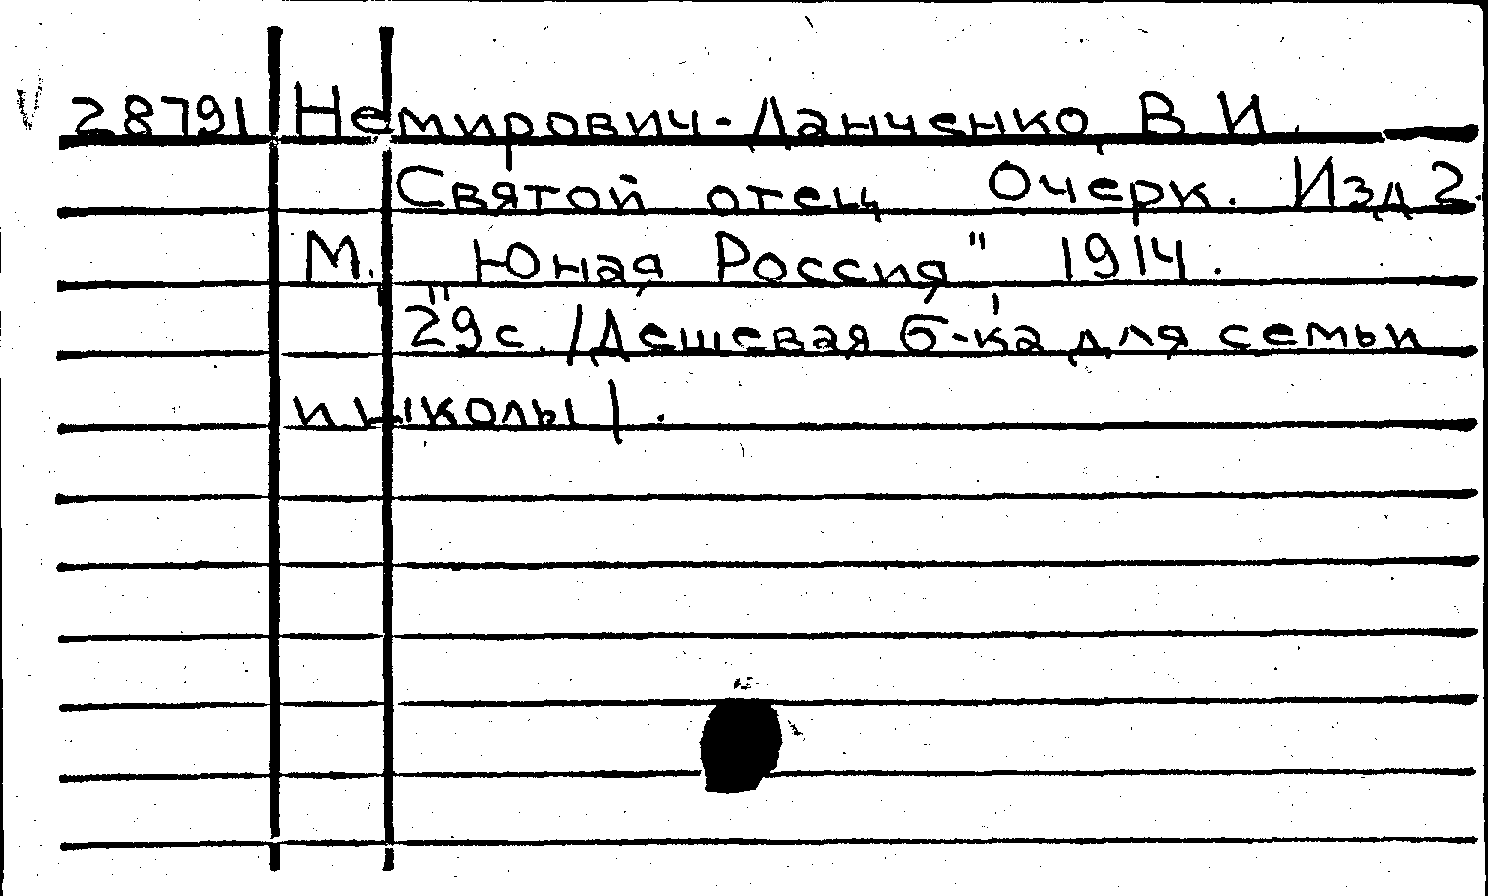 28791 Немирович-Данченко В И.
Святой отец Очерк. Изд 2.
М. "Юная Россия" 1914.
29 с. /Дешевая б-ка для семьи
и школы/.